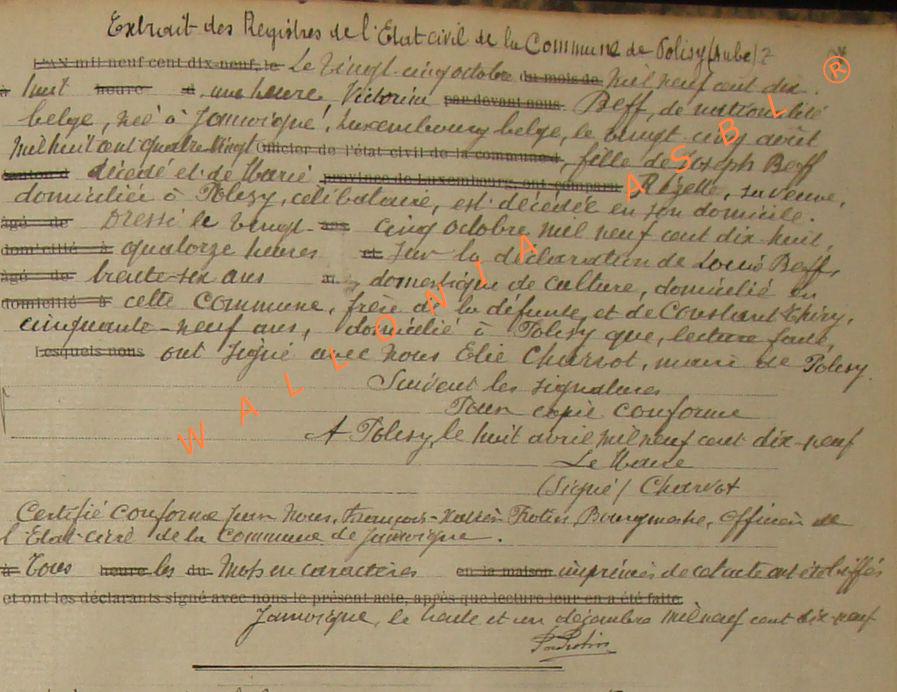 Extrait des Registres de l'Etat civil de la Commune de Polisy (Aube)
L'AN mil neuf cent dix-neuf, le Le vingt-cinq octobre du mois de mil neuf cent dix-
à huit heure à une heure, Victorine par devant nous Beff, de nationalité
belge, née à Jamoigne, Luxembourg belge, le vingt cinq août
mil huit cent quatre vingt officier de l'état civil de la commune d, fille de Joseph Beff
canton d décédé et de Marie province de Luxembourg, ont comparu Rézette, sa veuve,
domiciliée à Polisy, célibataire, est décédée en son domicile.
âgé de Dressé le vingt- ans cinq octobre mil neuf cent dix huit,
domicilié à quatorze heures et sur la déclaration de Louis Beff,
âgé de trente-six ans, domestique de culture, domicilié en
domicilié à cette Commune, frère de la défunte, et de Constant Thiry,
cinquante-neuf ans, domicilié à Polisy que, lecture faite,
Lesquels nous ont signé avec Nous Elie Charvot, maire de Polisy.
Suivent les signatures
Pour copie conforme
A Polisy, le huit avril mil neuf cent dix-neuf
Le Maire
(Signé) Charvot
Certifié conforme par Nous, François-Xavier Protin, Bourgmestre, officier de
l'Etat-civil de la Commune de Jamoigne.
à Tous heure les du Mots en caractères en la maison imprimés de cet acte ont été biffés
et ont les déclarants signé avec nous le présent acte, après que lecture leur en a été faite.
Jamoigne, le trente et un décembre mil neuf cent dix-neuf
WALLONIA ASBL ®